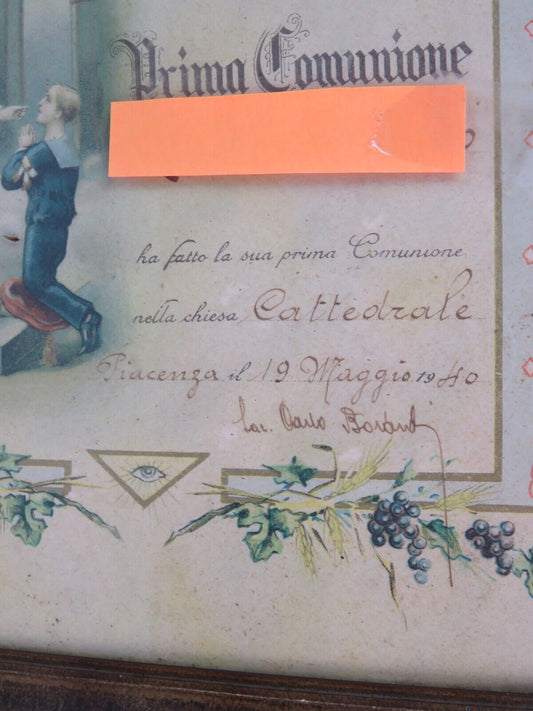 Prima Comunione
ha fatto la sua prima Comunione
nella chiesa Cattedrale
Piacenza il 19 Maggio 1940
Sac. Carlo